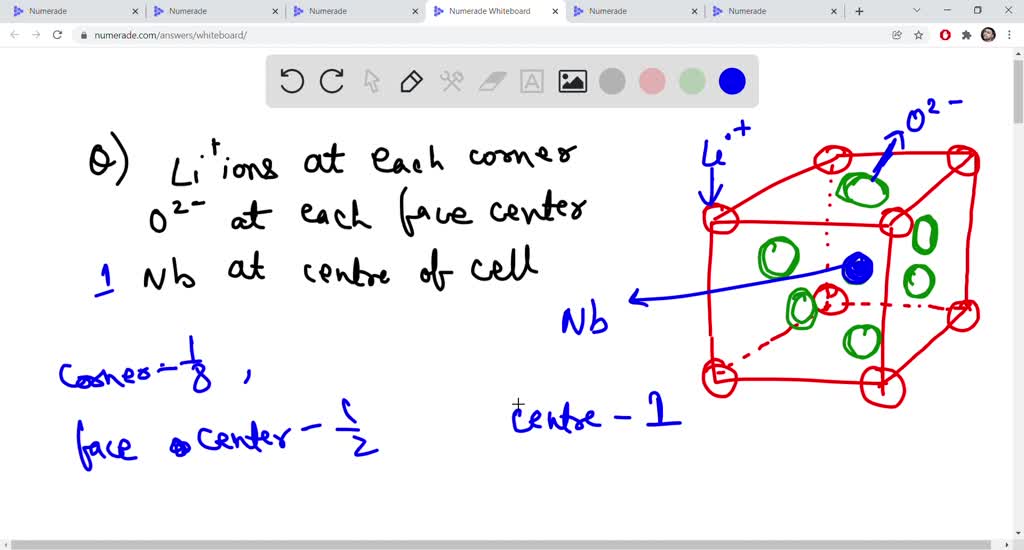 Numerade
Numerade
Numerade
Numerade Whiteboard
Numerade
Numerade
numerade.com/answers/whiteboard/
A
Q) Li+ ions at each corner
O2- at each face center
1 Nb at centre of cell
Li+
O2-
Nb
corner - 1/8 ,
face center - 1/2
centre - 1